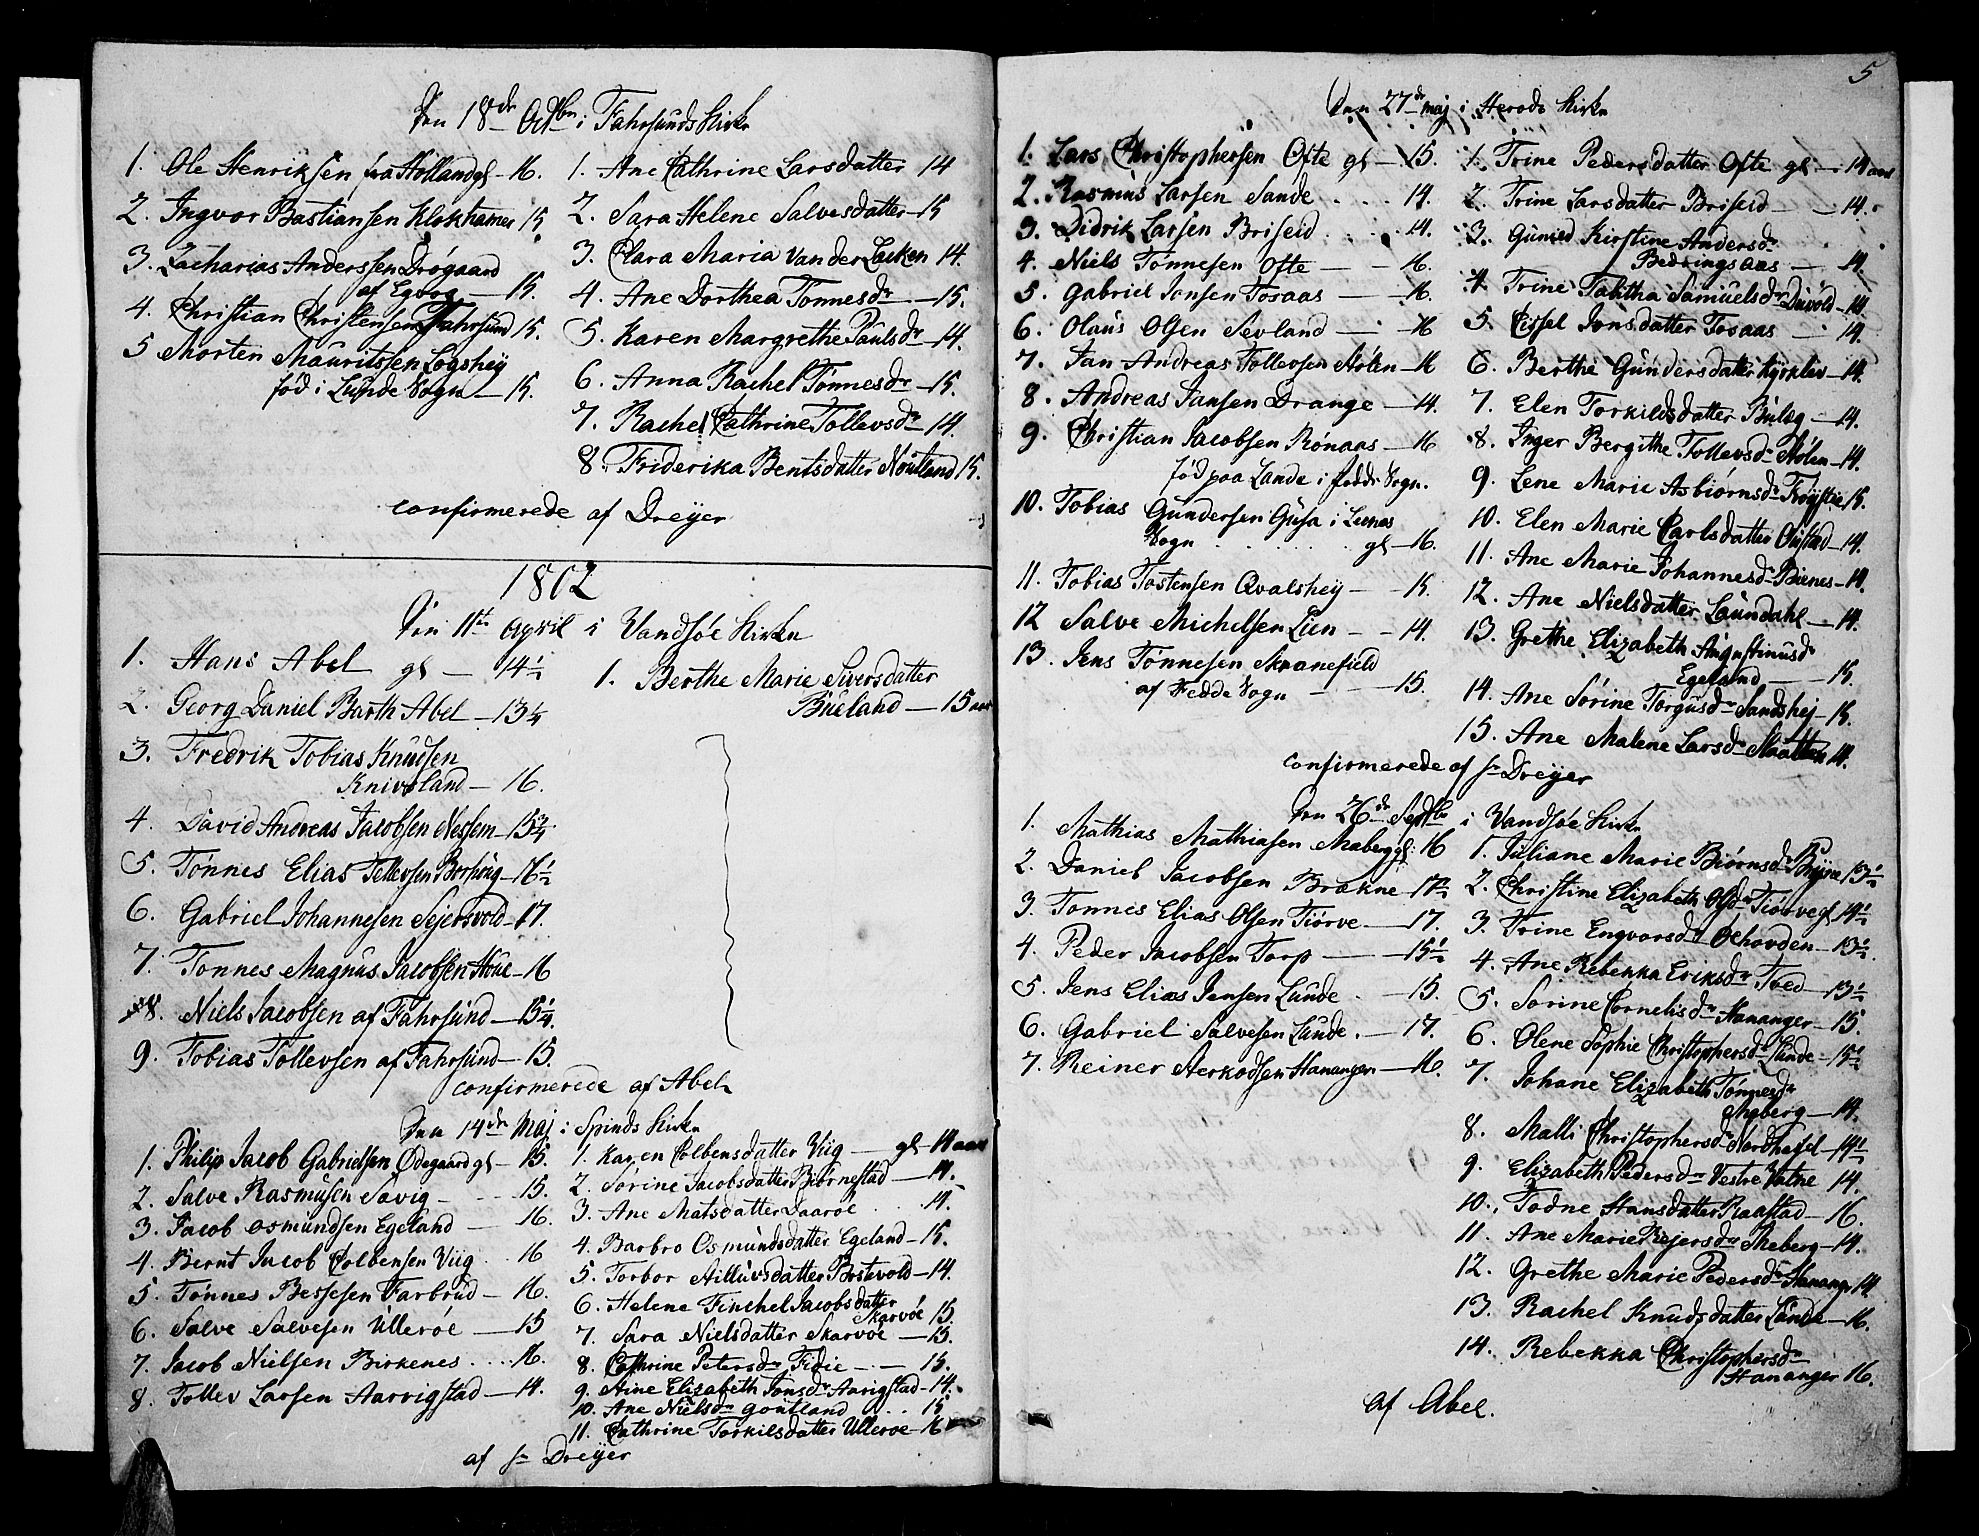 Den 18de Octbr i Fahrsunds Kirke
1. Ole Henriksen fra Holland gl – 16.
2. Ingvor Bastiansen Klokhamer 15
3. Zacharias Anderssen Drøgaard
af Egvog – 15.
4. Christian Christensen Fahrsund 15.
5 Morten Mauritssen Løgshey
fød i Lunde Sogn – 15.
1. Ane Cathrine Larsdatter 14
2. Sara Helene Salvesdatter – 15
3. Clara Maria van der Lecken 14.
4. Ane Dorthea Tønnesdr – 15.
5. Karen Margrethe Paulsdr – 14.
6. Anna Rachel Tønnesdr – 15.
7. Rachel Cathrine Tollevsdr 14.
8. Friderika Bentsdatter Noutland 15.
confirmerede af Dreyer
1802
Den 11te April i Vandsøe Kirke
1. Hans Abel gl – 14½
2. Georg Daniel Barth Abel – 13¼
3. Fredrik Tobias Knudsen
Knivsland – 16.
4. David Andreas Jacobsen Nessem – 15¾
5. Tønnes Elias Tellevsen Borhøug – 16½
6. Gabriel Johannesen Sejersvold – 17.
7. Tønnes Magnus Jacobsen Houe – 16
8. Niels Jacobsen af Fahrsund – 15¼.
9. Tobias Tollevsen af Fahrsund – 15.
1. Berthe Marie Siversdatter
Büeland – 15 aar
confirmerede af Abel
Den 14de Maj i Spinds Kirke
1. Philip Jacob Gabrielsen Ødegaard gl – 15.
2. Salve Rasmusen Savig – 15.
3. Jacob Osmundsen Egeland – 16.
4. Bernt Jacob Colbensen Viig 16
5. Tønnes Bessesen Farbrud – 16.
6. Salve Salvesen Ullerøe – 15
7. Jacob Nielsen Birkenes . . . 16.
8 Tollev Larsen Aarrigstad – 14.
1. Karen Colbensdatter Viig – gl – 14 aar
2. Sørine Jacobsdatter Biørnestad – 14.
3. Ane Matsdatter Daarøe . . 14.
4. Barbro Osmundsdatter Egeland – 15.
5. Torbor Aillüvsdatter Bostevold – 14.
6. Helene Finchel Jacobsdatter
Skarvøe 15.
7. Sara Nielsdatter Skarvøe – 15.
8. Cathrine Petersdr Fidie – – 15.
9. Aine Elizabeth Jonsdr Aarigstad – 14.
10. Ane Nielsdr Goutland . . 15
11. Cathrine Torkilsdatter Ullerøe – 16
af Hr Dreyer
5
Den 27de Maj i Herods Kirke
1. Lars Christophersen Ofte gl – 15.
2. Rasmus Larsen Sande . . . 14.
3. Didrik Larsen Briseid . . . 14.
4. Niels Tønnesen Ofte – – 16.
5. Gabriel Jonsen Tosaas – – 16.
6. Olaus Olsen Sevland – – 16
7. Jan Andreas Tollevsen Hølen – 16
8. Andreas Jansen Drange – 14.
9. Christian Jacobsen Rønaas – 16
fød paa Lande i fedde Sogn.
10. Tobias Gundersen Gusa i Liknes
Sogn . . . . . . gl – 16.
11. Tobias Tostensen Qvalshey – – 15.
12 Salve Michelsen Lien – – 14.
13. Jens Tønnesen Skranefield
af Fedde Sogn – – 15.
1. Trine Pedersdatter Ofte gl – 14 aar
2. Trine Larsdatter Briseid – – 14.
3. Gunild Kirstine Andersdr
Bedringsaas – 14.
4. Trine Tabitha Samuelsdr Duvold – 14.
5. Cissel Jonsdatter Tosaas – 14.
6. Berthe Gundersdatter Kjørkleiv – 14.
7. Elen Torkildsdatter Büleg – 14.
8. Inger Bergithe Tollevsdr Hølen – 14.
9. Lene Marie Asbiørnsdr Frøystie 15.
10. Elen Marie Carlsdatter Onstad – 14.
11. Ane Marie Johannesdr Bienes – 14.
12. Ane Nielsdatter Laundahl – 14.
13. Grethe Elizabeth Augustinusdr
Egeland – – 15.
14. Ane Sørine Torgusdr Sandshej – 15.
15. Ane Malene Larsdr Maatten 14.
confirmerede af Hr Dreyer
Den 26de Septbr i Vandsøe Kirke
1. Mathias Mathiasen Maberg gl. 16
2. Daniel Jacobsen Brakne – 17½
3. Tønnes Elias Olsen Tiørve – 17.
4. Peder Jacobsen Torp – – 15½
5. Jens Elias Jensen Lunde . – 15.
6. Gabriel Salvesen Lunde. – 17.
7. Reiner Herkodsen Hananger – 16.
1. Juliane Marie Biørnsdr Bryne 13½
2. Christine Elizabeth Olsdr Tiørve gl 14½
3. Trine Engvorsdr Øehovden – 13½.
4. Ane Rebekka Eriksdr Tved – 13½
5. Sørine Cornelisdr Hananger – 15.
6. Olene Sophie Christophersdr Lunde – 15½
7. Johane Elizabeth Tønnesdr
Meberg – 14.
8. Malli Christophersdr Nordhasel – 14½
9. Elizabeth Pedersdr Vestre Vatne 14.
10. Todne Hansdatter Raastad – 16.
11. Ane Marie Rejersdr Meberg – 14.
12. Grethe Marie Pedersdr Hanang 14.
13. Rachel Knudsdatter Lunde – 16.
14. Rebekka Christophersdr
Hananger 16.
af Abel.